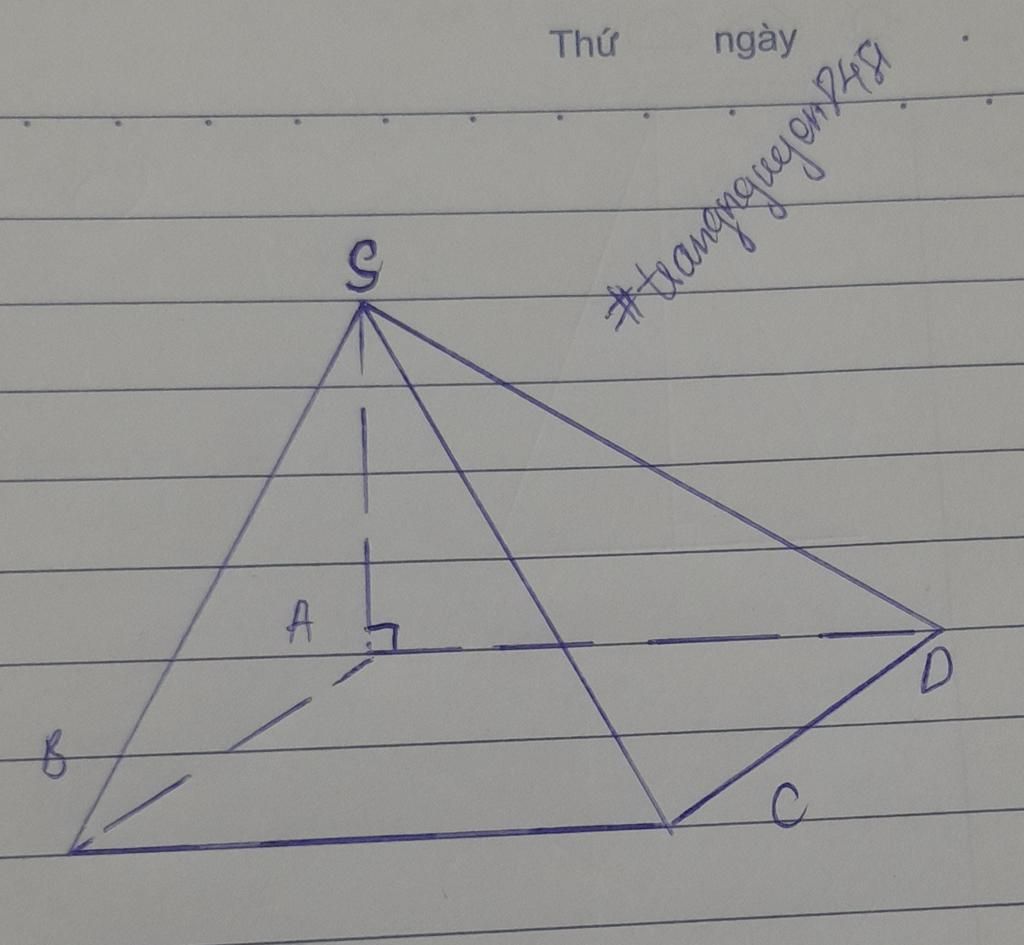 Thứ ngày
#trangnguyen248
S
A
D
B
C